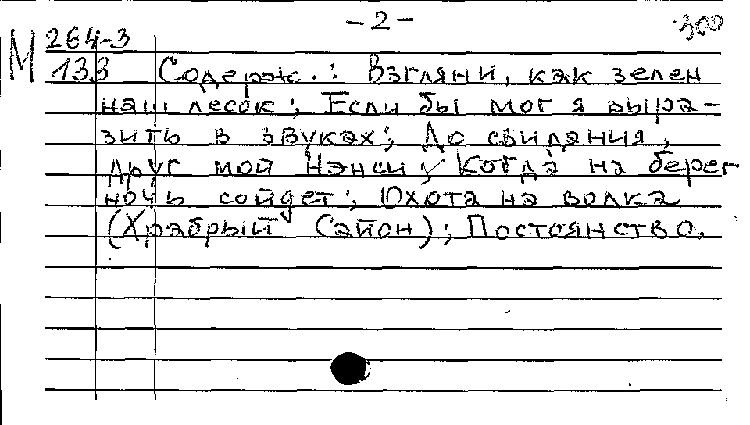 - 2 -
300
М 264-3
133 Содерж.: Взгляни, как зелен
наш лесок; Если бы мог я выра-
зить в звуках; До свидания,
друг мой Нэнси; Когда на берег
ночь сойдет; Охота на волка
(Храбрый Сайон); Постоянство.